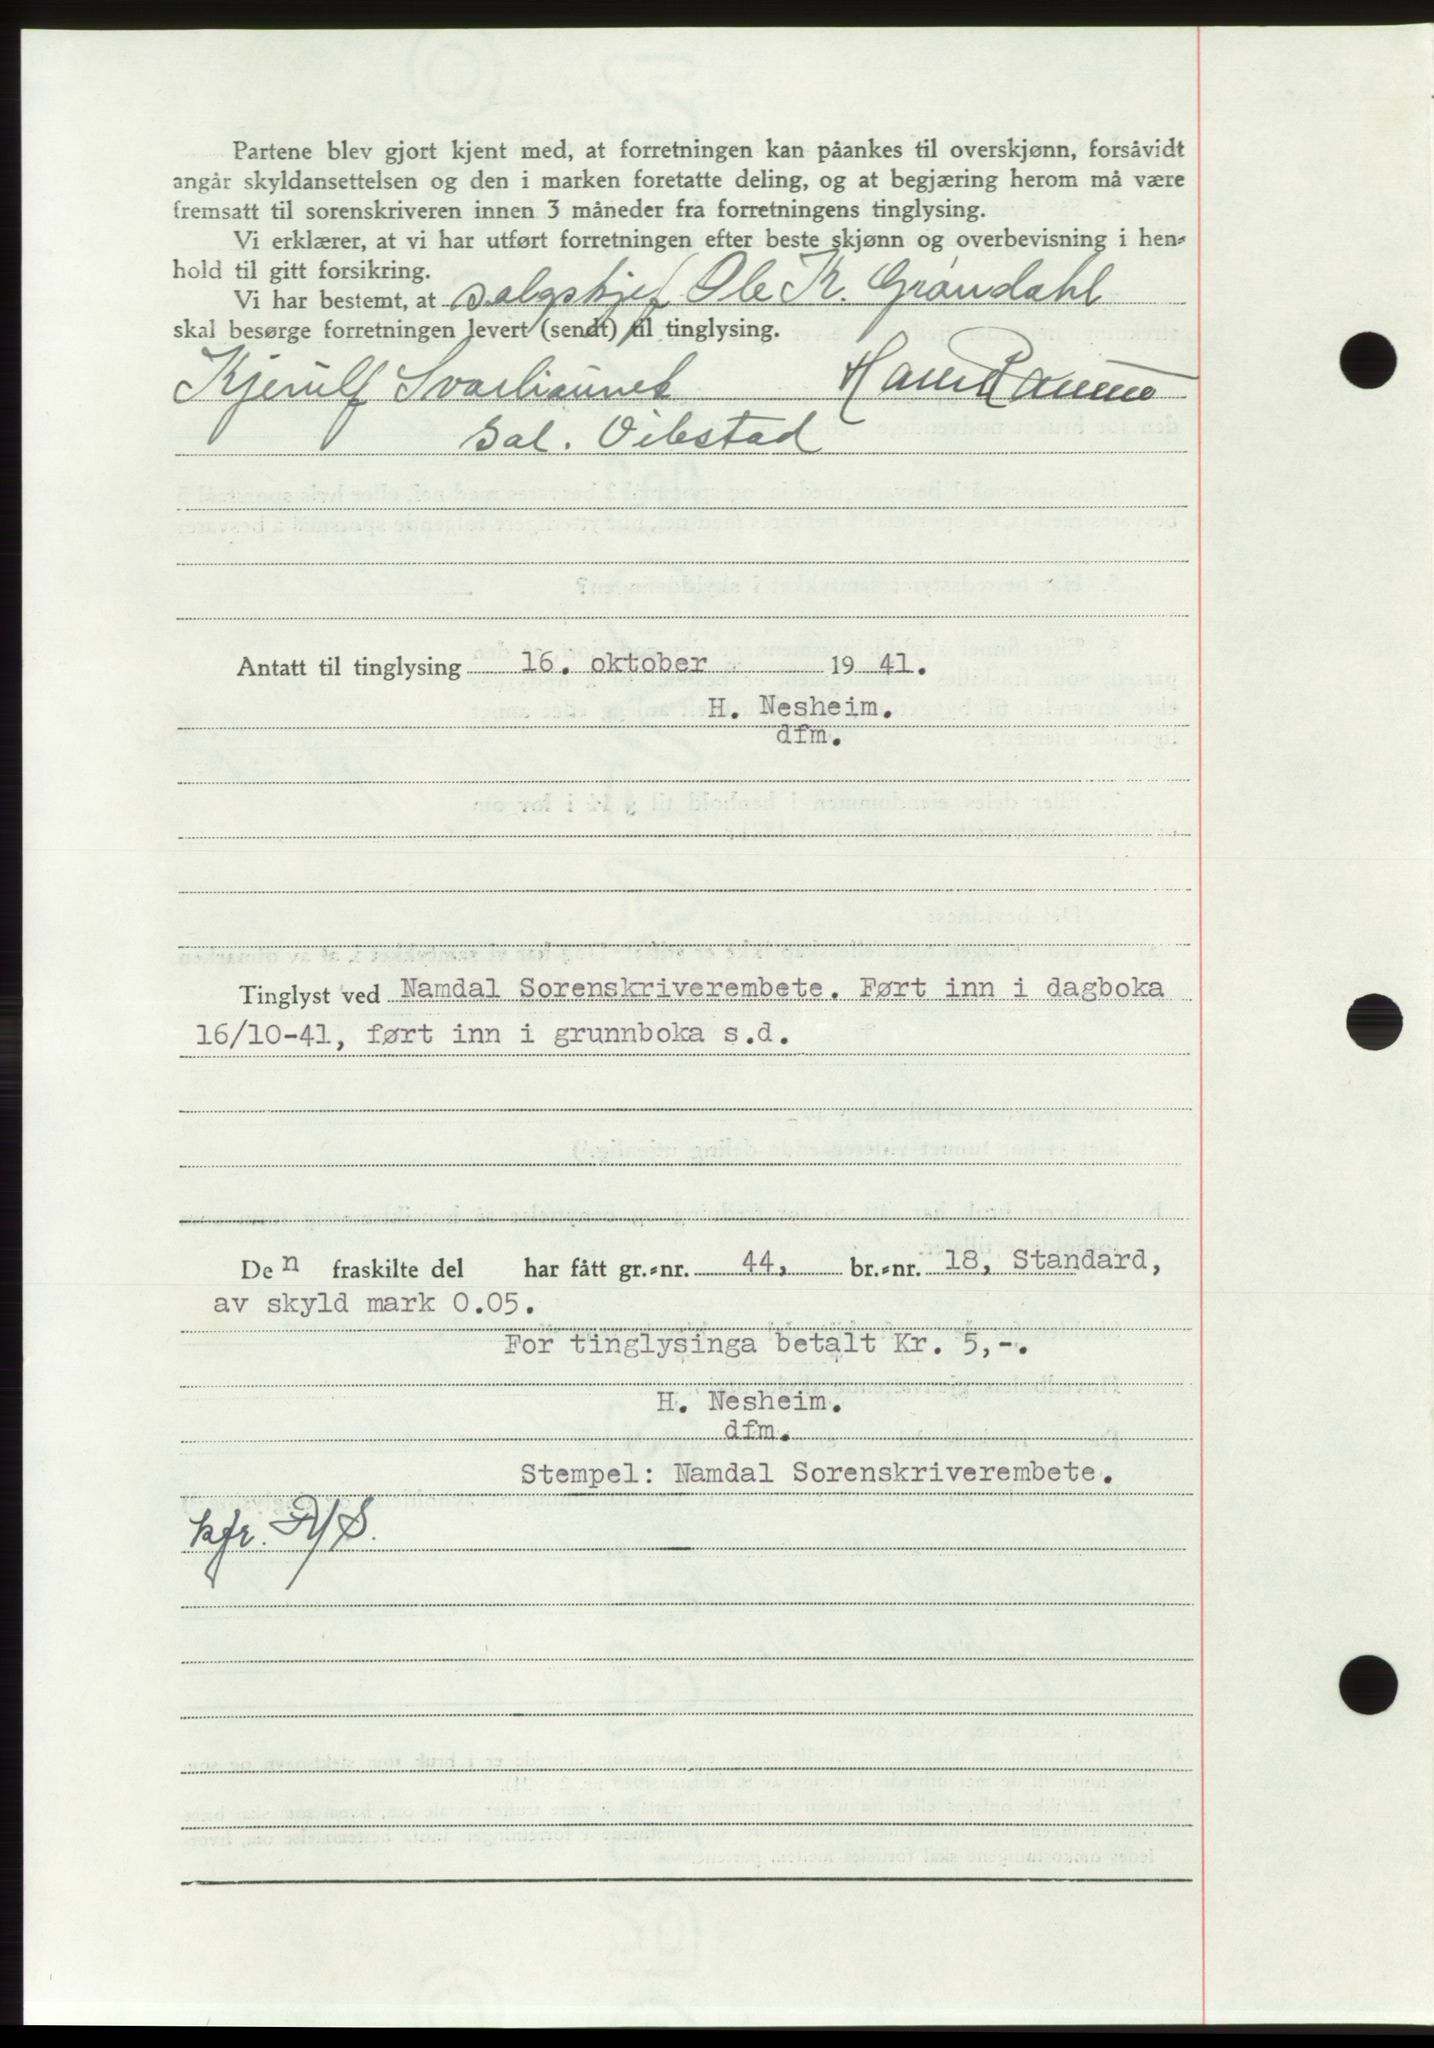 Partene blev gjort kjent med, at forretningen kan påankes til overskjønn, forsåvidt
angår skyldansettelsen og den i marken foretatte deling, og at begjæring herom må være
fremsatt til sorenskriveren innen 3 måneder fra forretningens tinglysing.
Vi erklærer, at vi har utført forretningen efter beste skjønn og overbevisning i hen-
hold til gitt forsikring.
Vi har bestemt, at salgskjef Ole Kr. Grøndahl
skal besørge forretningen levert (sendt) til tinglysing.
Kjerulf Svarliaunet Hans Raum
Sal. Vibstad
Antatt til tinglysing 16. oktober 19 41.
H. Nesheim.
dfm.
Tinglyst ved Namdal Sorenskriverembete. Ført inn i dagboka
16/10-41, ført inn i grunnboka s.d.
Den fraskilte del har fått gr.-nr. 44, br.-nr. 18, Standard,
av skyld mark 0.05.
For tinglysinga betalt Kr. 5,-.
H. Nesheim.
dfm.
Stempel: Namdal Sorenskriverembete.
kfr.